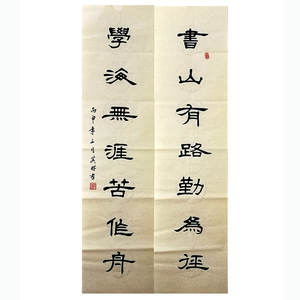 書山有路勤為徑
學海無涯苦作舟
丙申年